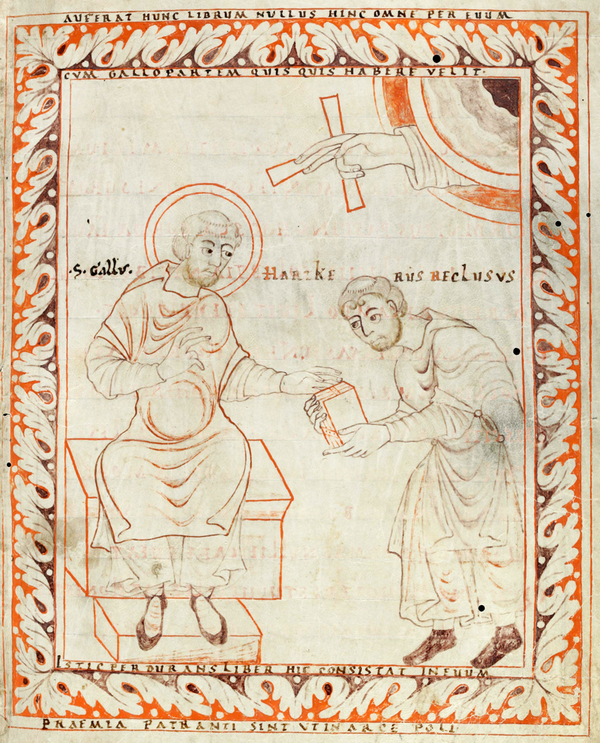 AUFERAT HUNC LIBRUM NULLUS HINC OMNE PER EUUM
CVM GALLO PARTEM QUIS QUIS HABERE VELIT·
·S· Gallv·
HARTKE RUS RECLUSVS
ISTIC PER DURANS LIBER HIC CONSISTAT IN EUUM
PRAEMIA PATRANTI SINT VT IN ARCE POLI·